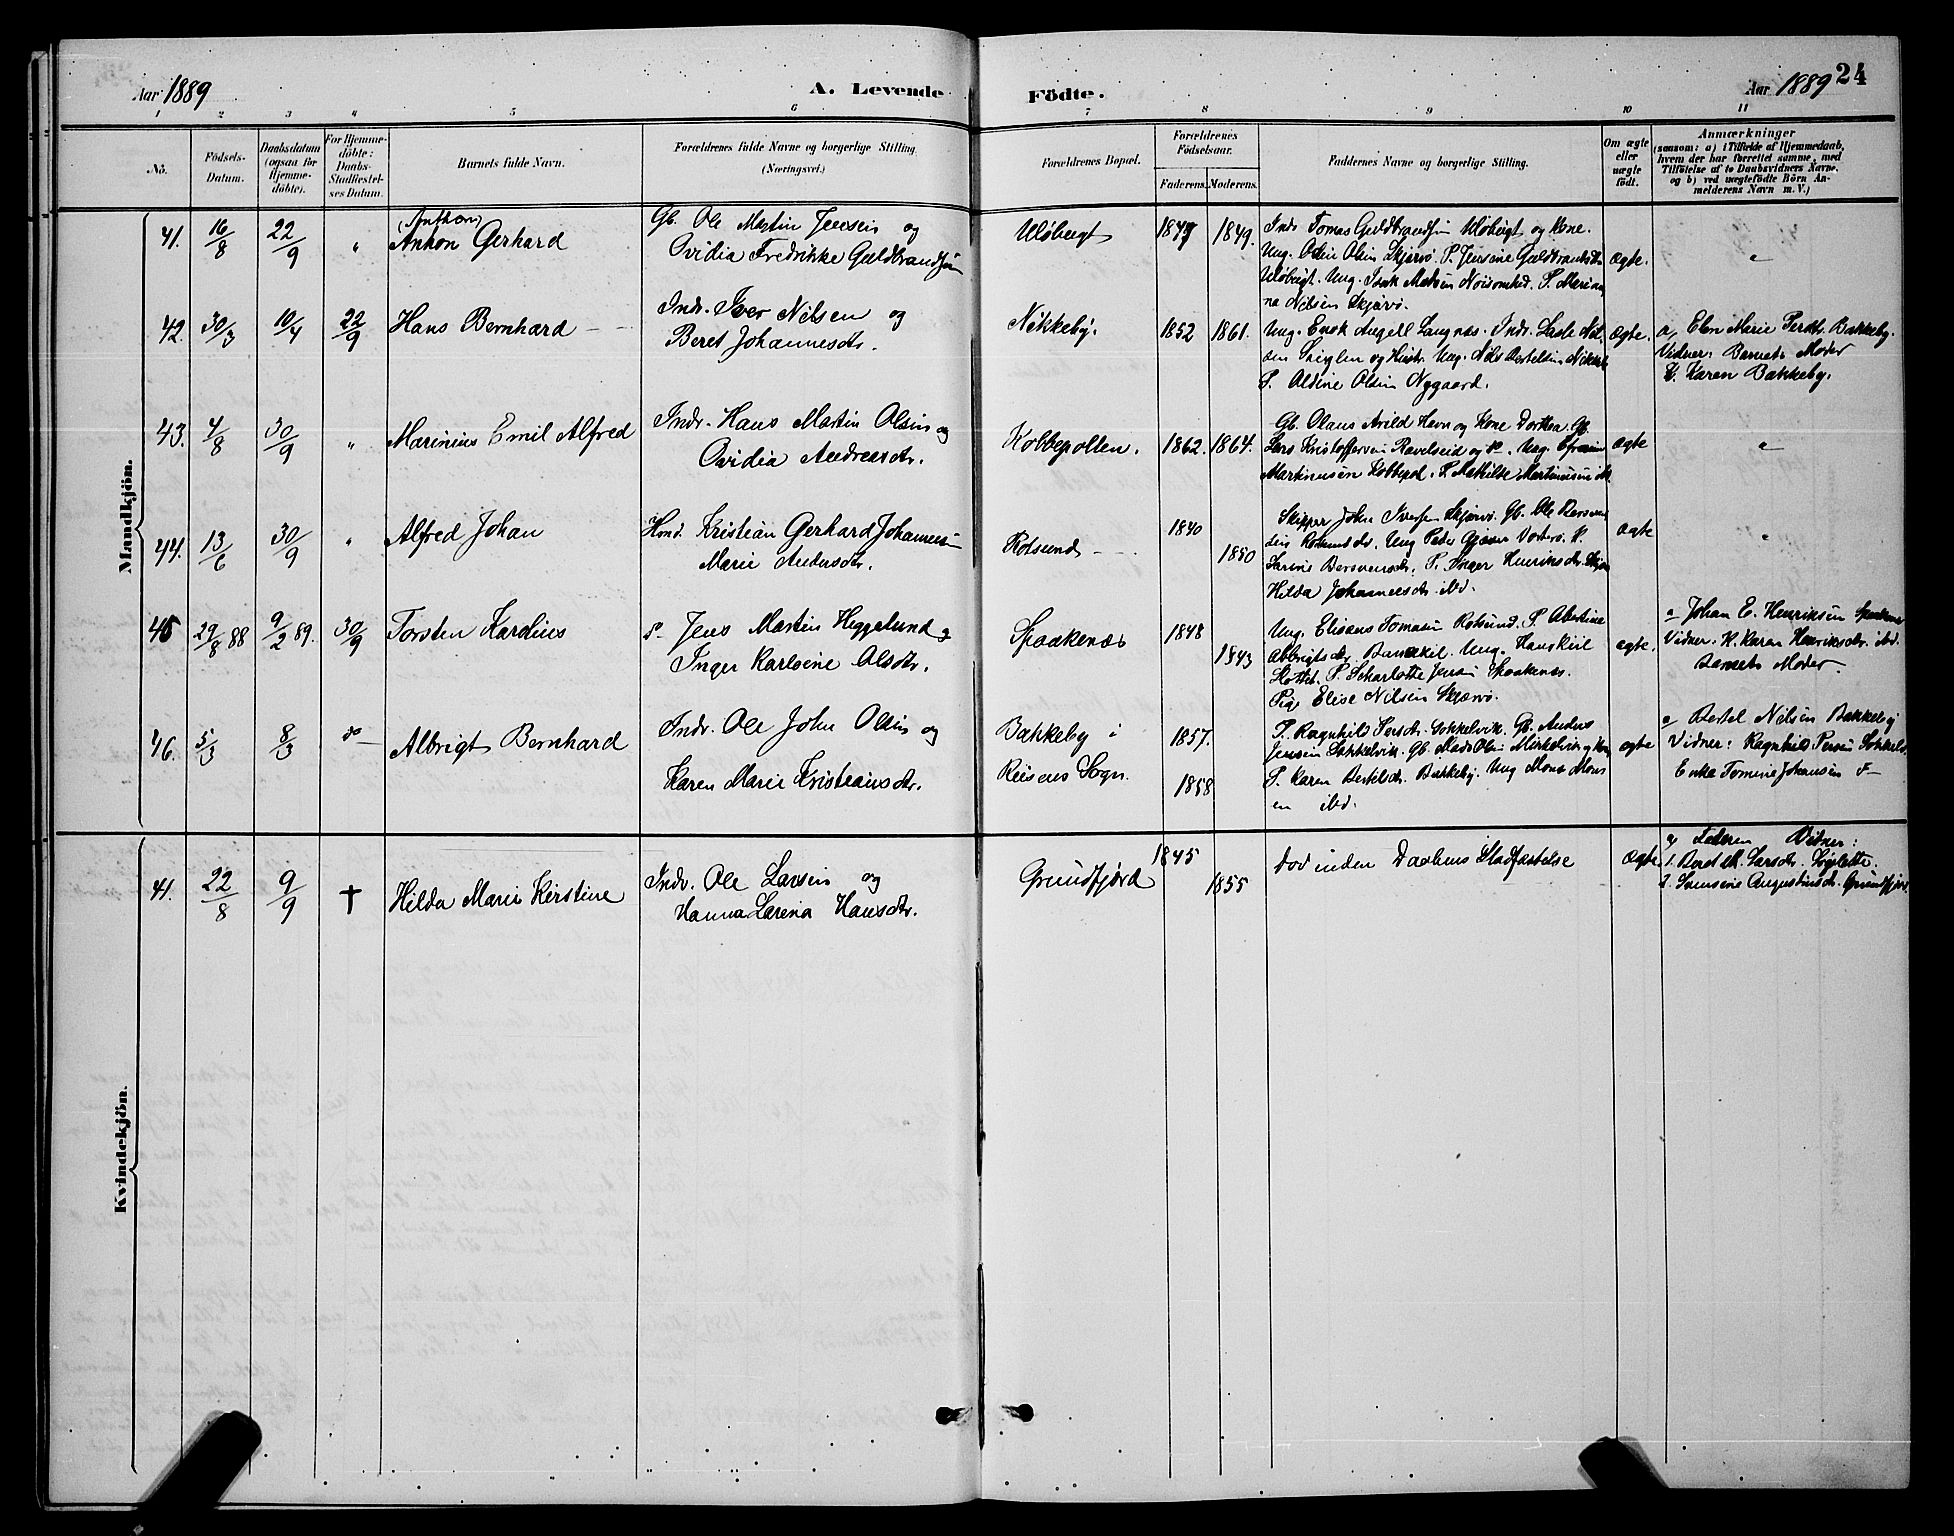 Aar 1889
A. Levende
Födte.
Aar 1889
24
1 2 3 4 5 6 7 8 9 10 11
No.
Födsels-
Datum.
Daabsdatum
(ogsaa for
Hjemme-
döbte).
For Hjemme-
döbte:
Daabs-
Stadfæstel-
ses Datum.
Barnets fulde Navn.
Forældrenes fulde Navne og borgerlige Stilling.
(Næringsvei.)
Forældrenes Bopæl.
Forældrenes
Födselsaar.
Faderens. Moderens.
Faddernes Navne og borgerlige Stilling.
Om ægte
eller
uægte
födt.
Anmærkninger
(saasom: a) i Tilfælde af Hjemmedaab,
hvem der har forrettet samme, med
Tilföielse af to Daabsvidners Navne,
og b) ved uægtefödte Börn An-
melderens Navn m. V.)
Mandkjön.
41. 16/8 22/9 "
(Anthon)
Anton Gerhard
Gb. Ole Martin Jensen og
Ovidia Fredrikke Guldbrandsen
Ulöbugt 1847 1849.
Inds Tomas Guldbrandsen Ulöbugt og Kone.
Ung. Odin Olsen Skjærvö. P. Jensine Guldbrandsdtr
Ulöbugt. Ung. Isak Madsen Noisomhed. P. Marian
na Nilsen Skjærvö.
ægte. "
42. 30/3 10/4 22/9 Hans Bernhard
Indr. Iver Nilsen og
Beret Johannesdtr.
Nikkeby. 1852 1861.
Ung. Enok Angell Langnæs. Indr. Lasle Nil
sen og Hustr. Ung. Nils Bertelsen Nikkeb
P. Aldine Olsen Nygaard.
ægte.
a, Elen Marie Persdtr. Bakkeby.
Vidner: Barnets Moder
K. Karen Bakkeby.
43. 4/8 30/9 " Marinius Emil Alfred
Indr. Hans Martin Olsen og
Ovidia Andreasdtr.
Kobbepollen. 1862. 1864.
Gb. Olaus Arild Havn og Kone Dorthea. Gb.
Lars Kristoffersen Ravelseid og K. Ung. Efraim
Martinusen Kobbepol. P. Mathilde Martinusen
ægte "
44. 13/6 30/9 " Alfred Johan
Kristian Gerhard Johannesen
Marie Andersdtr.
Rotsund 1840 1850
Skipper John Iversen Skjærvö. Gb. Ole
Rotsund. Ung Peder Vorterö. K.
Larine Bersvensdtr. P. Inger Henriksdtr. Skjær
Hilda Johannesdtr ibd.
ægte "
45 29/8 88 9/2 89. 30/9 Torsten Kardius
Jens Martin Heggelund &
Inger Karlsine Olsdtr.
Spaakenæs 1848 1843
Ung. Elisæus Tomasen Rotsund. P. Abertine
Albrigtsdtr. Ung. Hans Kiil
Slottet. P. Scharlotte Jensen Spaakenæs.
Pige Elise Nilsen Skjærvö.
ægte.
a Johan E. Henriksen Spaakenæs
Vidner. K. Karen Henriksdtr. ibd.
Barnets Moder
46. 5/3 8/3 do Albrigt Bernhard
Indr. Ole John Olsen og
Karen Marie Kristiansdtr.
Bakkeby i
Reisens Sogn.
1857. 1858
P. Ragnhild Persdtr. Sokkelvik. Gb. Anders
Jensen Sokkelvik. Gb. Mads Olsen Mirkelvik og Kone
P. Karen Bertelsdtr. Bakkeby. Ung Mons Mons
en ibd.
ægte
a Bertel Nilsen Bakkeby
Vidner: Ragnhild Persen Sokkelv
Enke Tomine Johansen
Kvindekjön.
41. 22/8 9/9 † Hilda Marie Kirstine
Indr. Ole Larsen og
Hanna Larina Hansdtr.
Grundfjord 1845 1855
Död inden Daabens Stadfæstelse
Ægte
a, Faderen Vidner:
1. Beret M. Larsdtr.
2. Samsine Augustinsdtr. Grundfjord